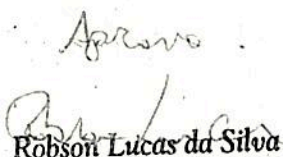 Aprovo.
Robson Lucas da Silva